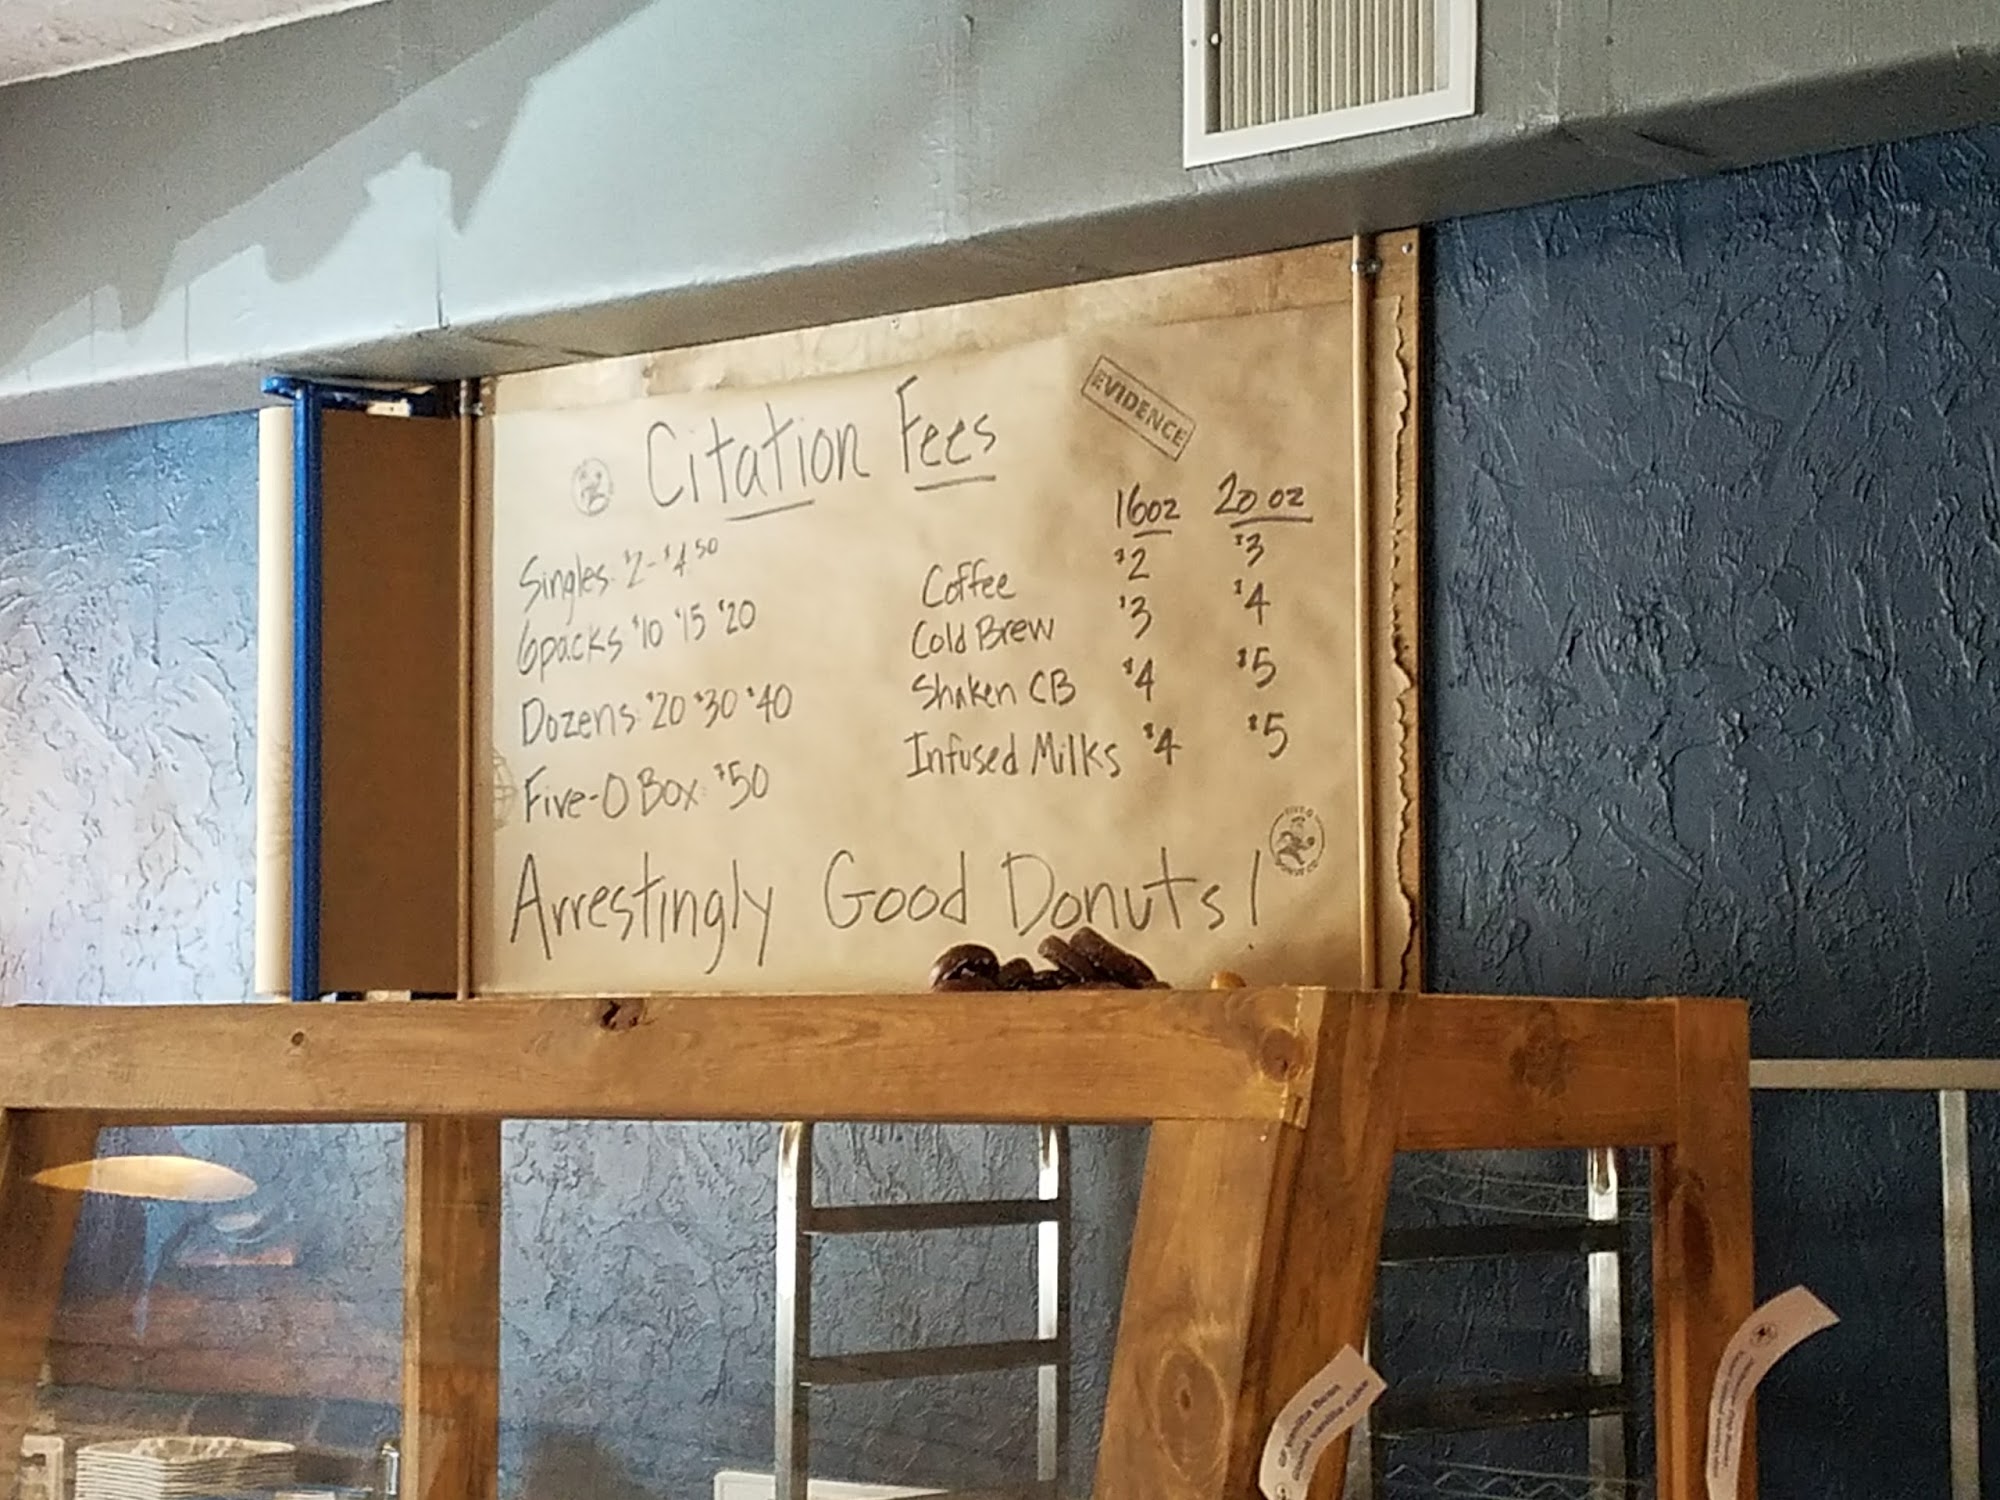 Citation Fees
EVIDENCE
Singles: $2-$4.50
6packs $10 $15 $20
Dozens: $20 $30 $40
Five-O Box: $50
16oz 20 oz
Coffee $2 $3
Cold Brew $3 $4
Shaken CB $4 $5
Infused Milks $4 $5
Arrestingly Good Donuts!
FIVE-O
DONUT CO